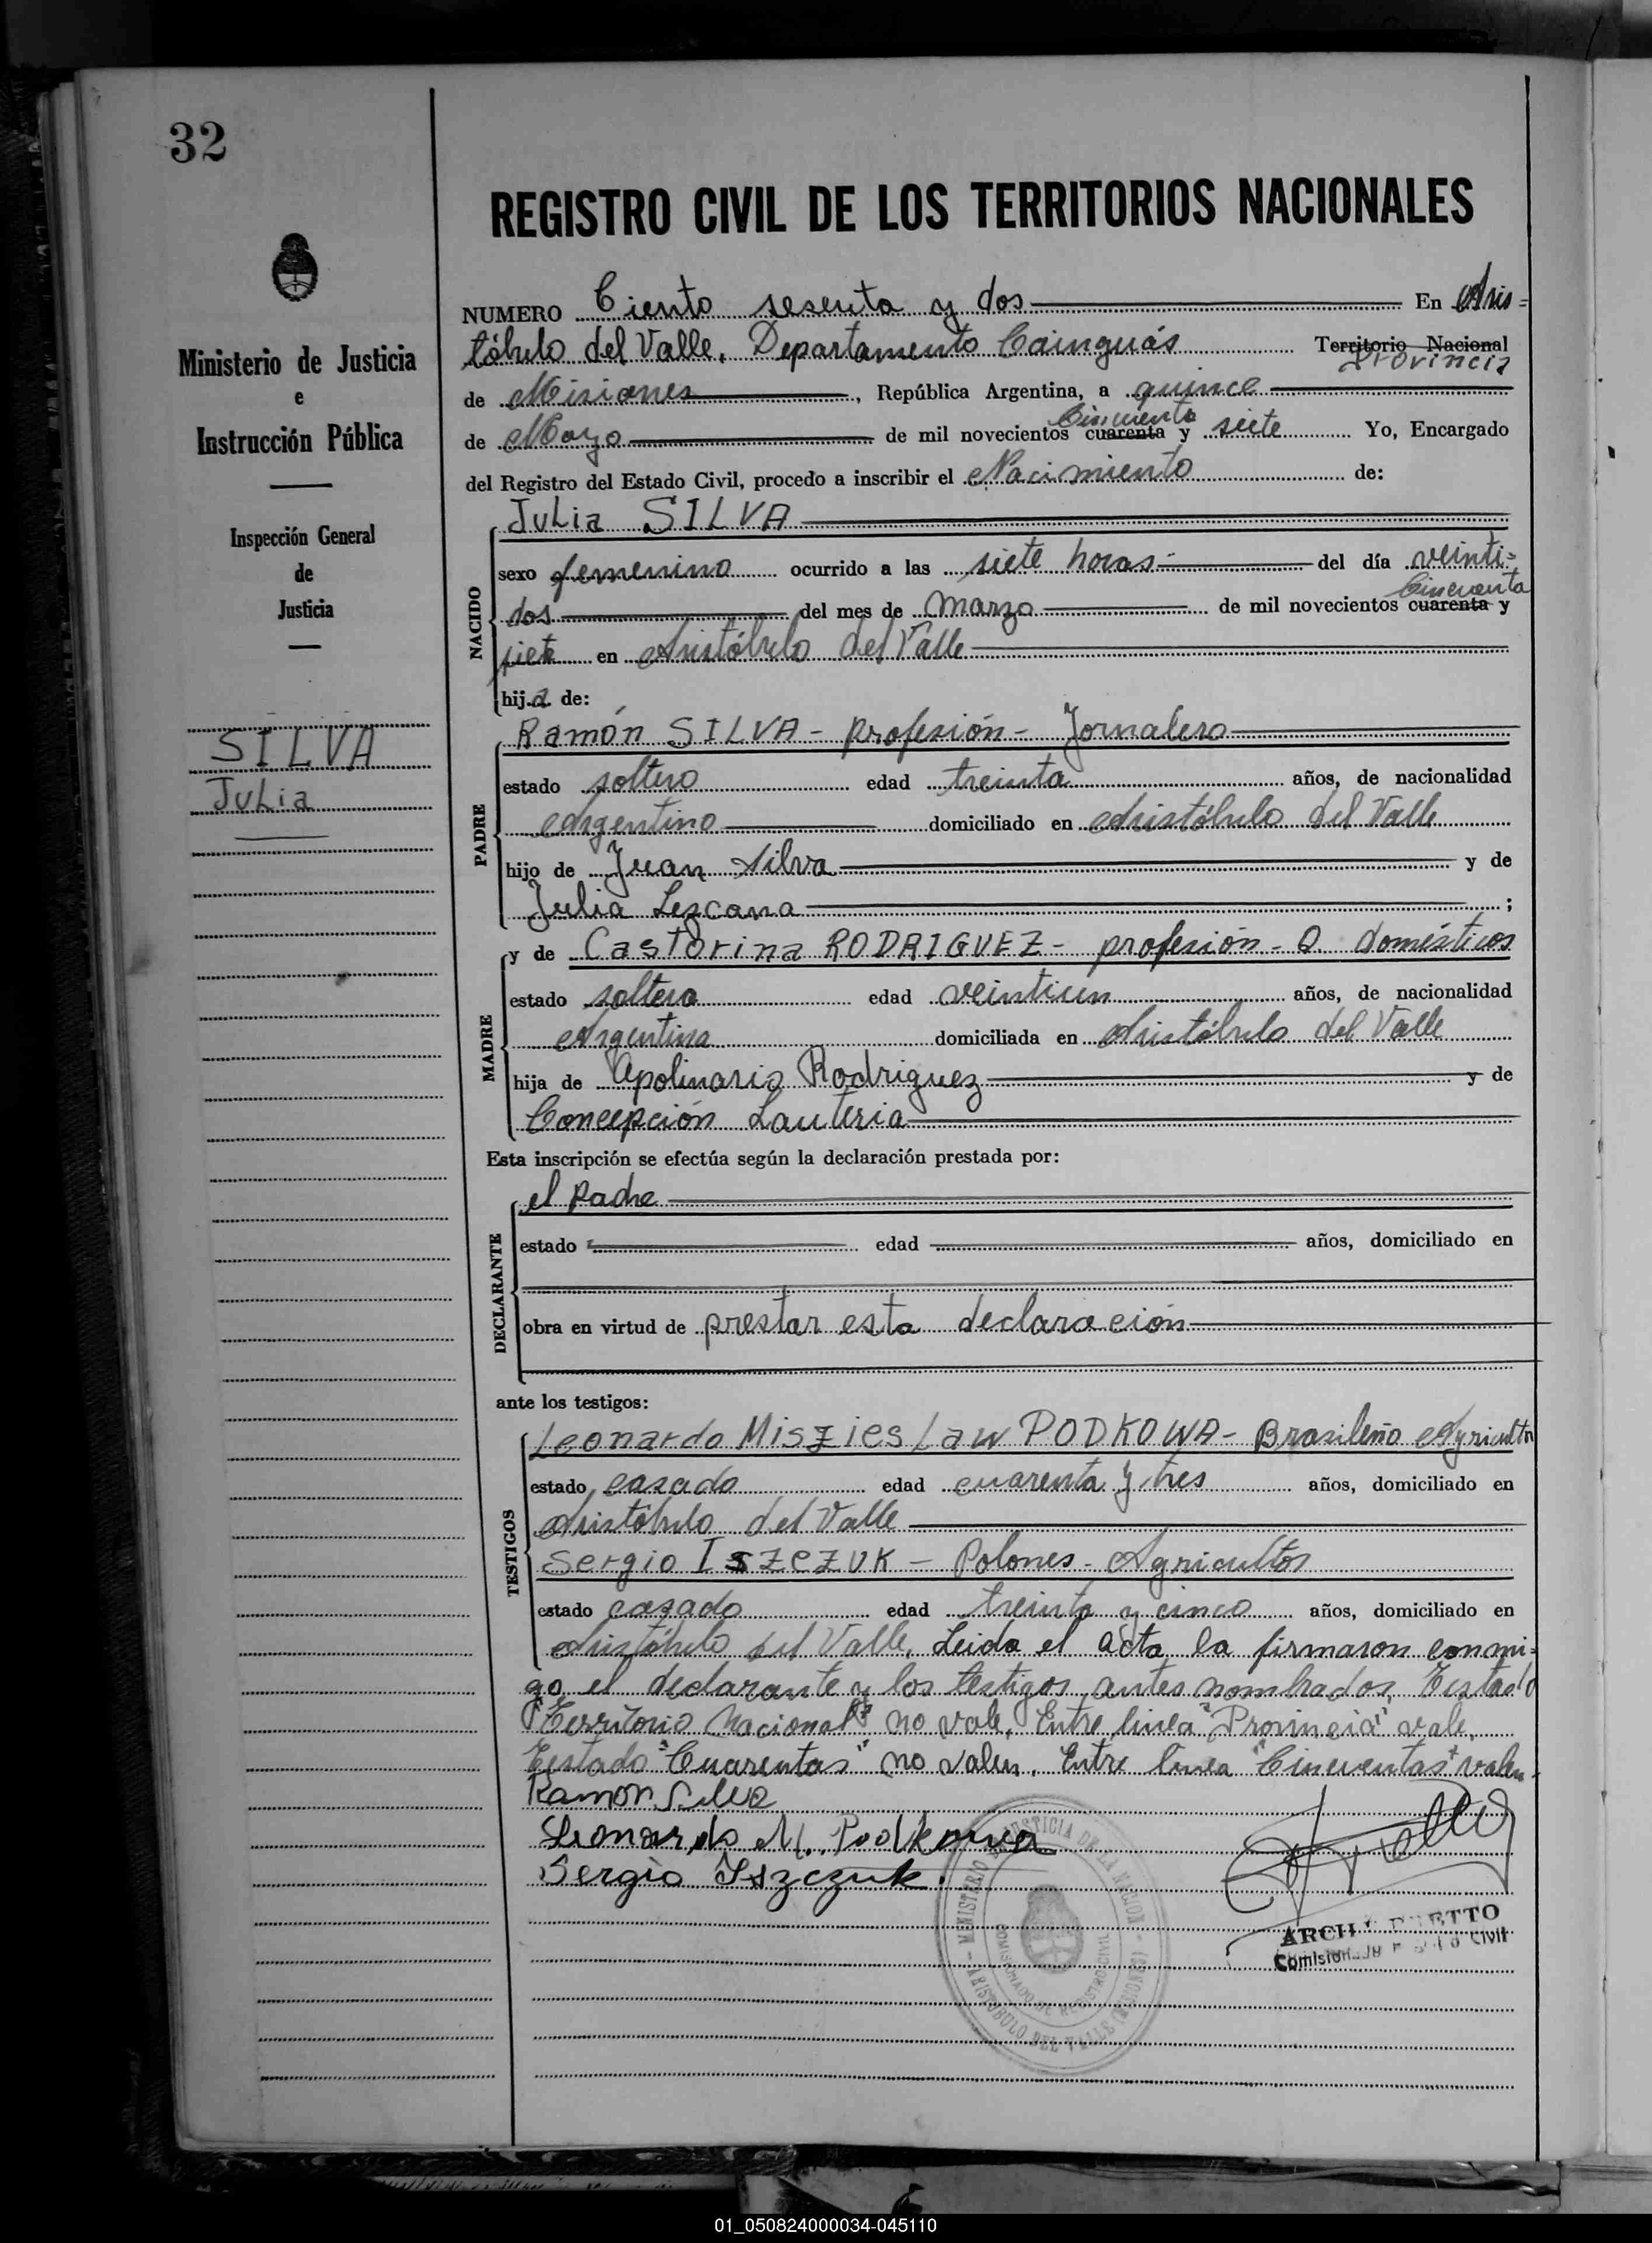 32
Ministerio de Justicia
e
Instrucción Pública
Inspección General
de
Justicia
SILVA
Julia
REGISTRO CIVIL DE LOS TERRITORIOS NACIONALES
NUMERO Ciento sesenta y dos En Aris=
tóbulo del Valle, Departamento Cainguás Territorio Nacional
Provincia
de Misiones, República Argentina, a quince
Cincuenta
de Mayo de mil novecientos cuarenta y siete Yo, Encargado
del Registro del Estado Civil, procedo a inscribir el Nacimiento de:
NACIDO
Julia SILVA
sexo femenino ocurrido a las siete horas- del día veinti=
Cincuenta
dos del mes de Marzo de mil novecientos cuarenta y
siete en Aristóbulo del Valle
hija de:
PADRE
Ramón SILVA - profesión - Jornalero
estado soltero edad treinta años, de nacionalidad
Argentino domiciliado en Aristóbulo del Valle
hijo de Juan Silva y de
Julia Lezcana ;
MADRE
y de Castorina RODRIGUEZ - profesión - Q. domésticos
estado soltera edad veintiun años, de nacionalidad
Argentina domiciliada en Aristóbulo del Valle
hija de Apolinario Rodriguez y de
Concepción Lauteria
Esta inscripción se efectúa según la declaración prestada por:
DECLARANTE
el padre
estado edad años, domiciliado en
obra en virtud de prestar esta declaración
ante los testigos:
TESTIGOS
Leonardo Miszieslaw PODKOWA - Brasileño Agricultor
estado casado edad cuarenta y tres años, domiciliado en
Aristóbulo del Valle
Sergio ISZCZUK - Polones - Agricultor
estado casado edad treinta y cinco años, domiciliado en
Aristóbulo del Valle, Leida el acta la firmaron conmi=
go el declarante y los testigos antes nombrados, Testado
"Territorio Nacional" no vale, Entre linea "Provincia" vale,
Testado "Cuarentas" no valen. Entre linea "Cincuentas" valen-
Ramon Silva
Leonardo M. Podkowa
Sergio Iszczuk.
MINISTERIO DE JUSTICIA DE LA NACION
ARISTOBULO DEL VALLE (MISIONES)
Comisionado Registro Civil
01_050824000034-045110